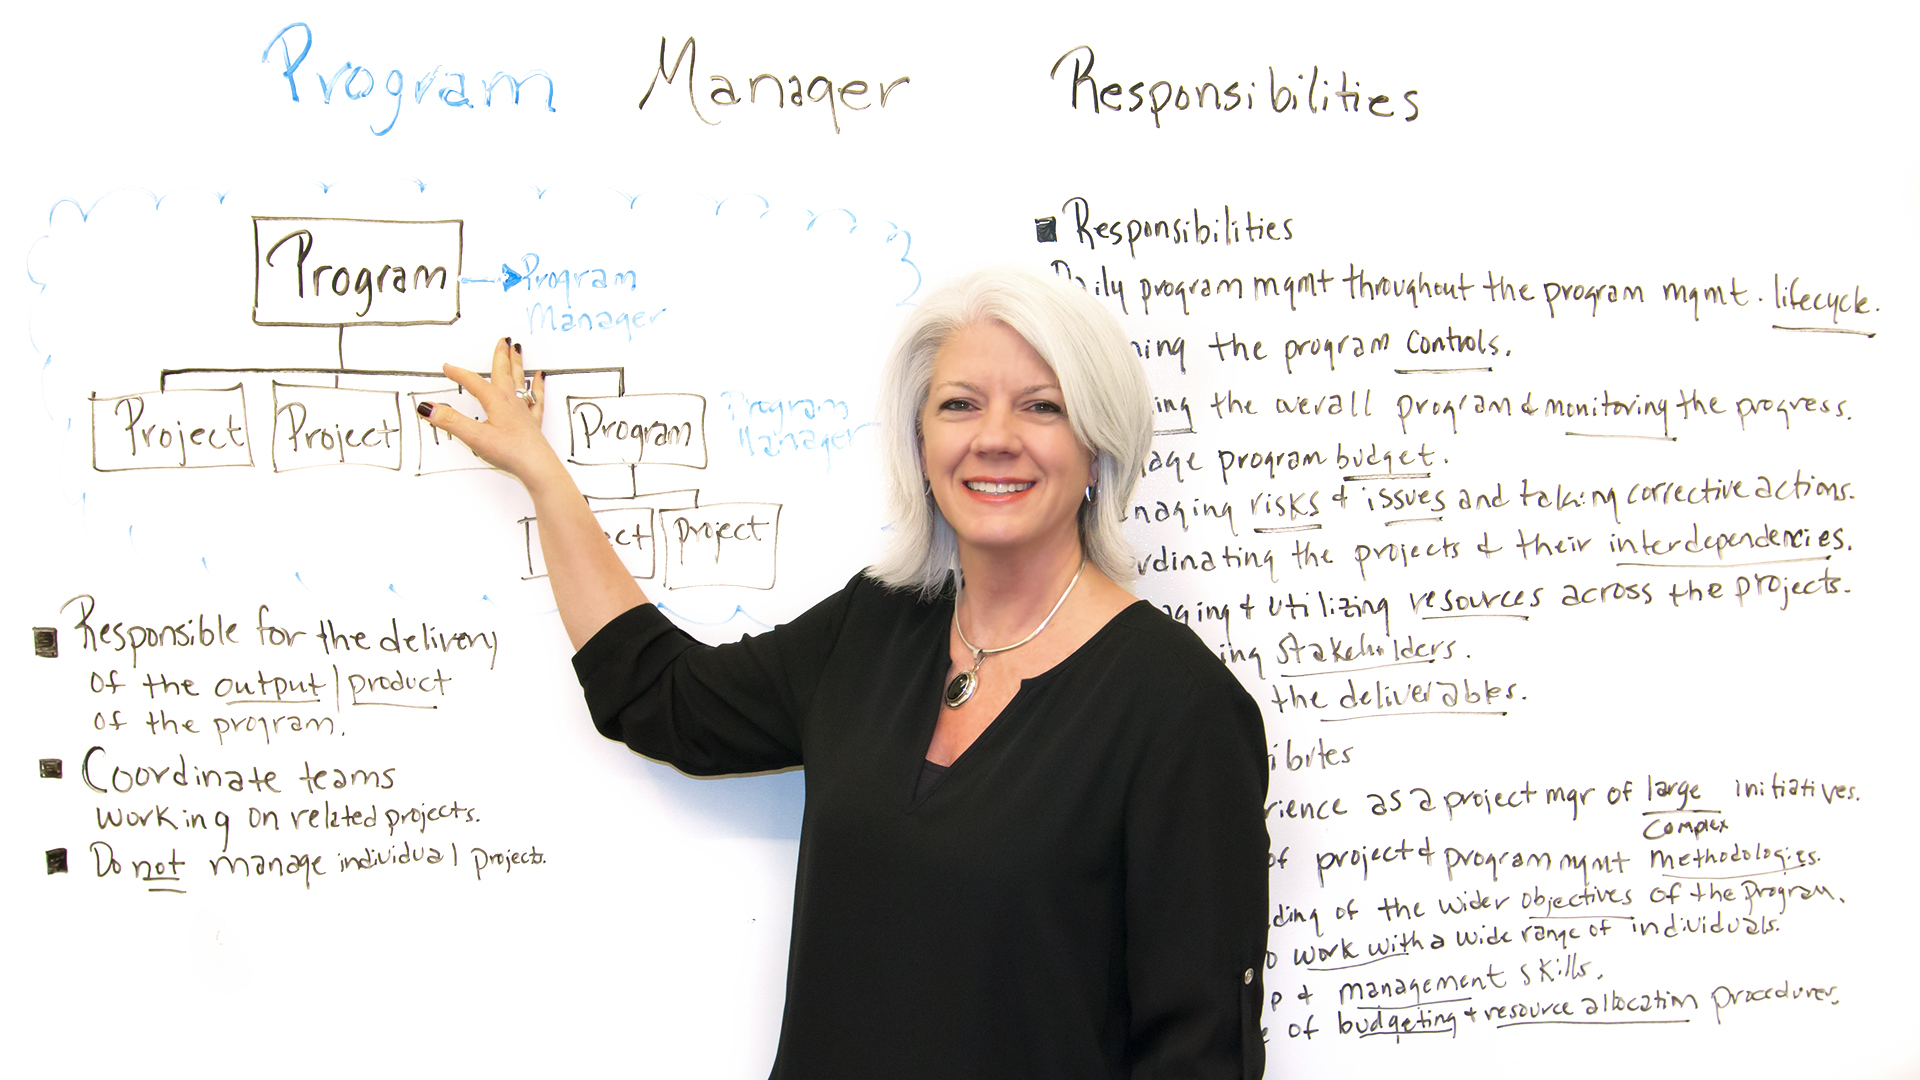 Program Manager Responsibilities
Program
Program
Manager
Project
Project
Program
Program
Manager
Project
Responsible for the delivery
of the output/product
of the program.
Coordinate teams
working on related projects.
Do not manage individual projects.
Responsibilities
program mgmt throughout the program mgmt. lifecycle.
the program controls.
the overall program & monitoring the progress.
program budget.
risks & issues and taking corrective actions.
the projects & their interdependencies.
& utilizing resources across the projects.
stakeholders.
the deliverables.
as a project mgr of large initiatives.
complex
of project & program mgmt methodologies.
of the wider objectives of the program.
work with a wide range of individuals.
& management skills.
of budgeting & resource allocation procedures.